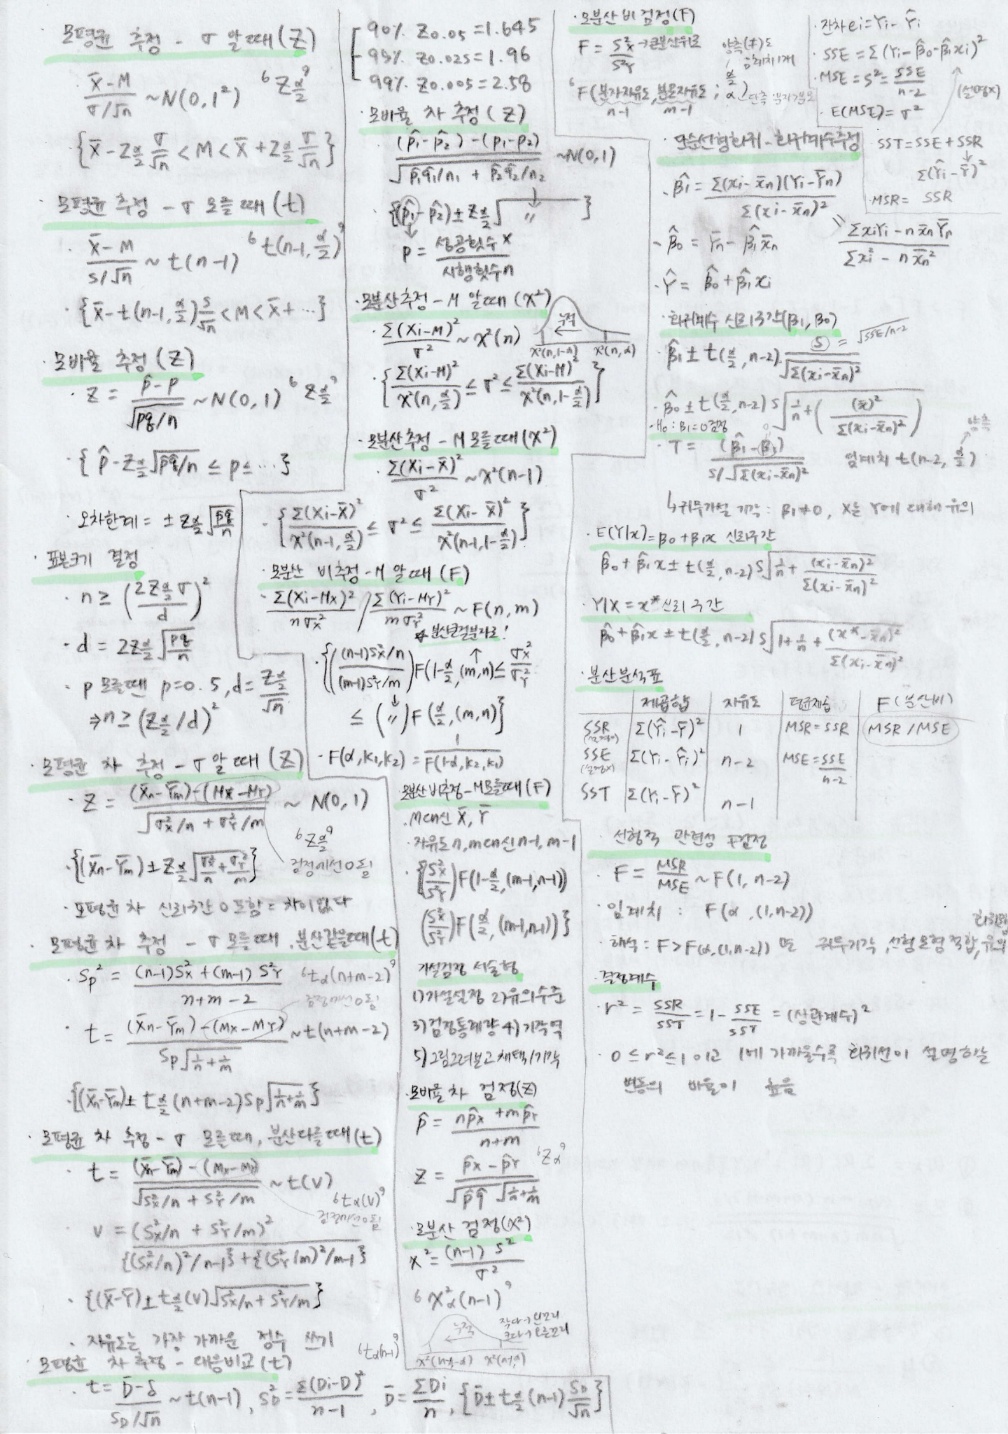 · 모평균 추정 - σ 알때 (Z)
(X̄-M)/(σ/√n) ~N(0,1²) “Zα/2”
· {X̄-Zα/2 σ/√n < M < X̄+Zα/2 σ/√n}
· 모평균 추정 - σ 모를때 (t)
· (X̄-M)/(s/√n) ~ t(n-1) “t(n-1, α/2)”
· {X̄-t(n-1, α/2) s/√n < M < X̄+ …}
· 모비율 추정 (Z)
· Z = (p̂-p)/√(pq/n) ~N(0,1) “Zα/2”
· {p̂-Zα/2 √(p̂q̂/n) ≤ p ≤ …}
· 오차한계 = ± Zα/2 √(p̂q̂/n)
· 표본크기 결정
· n ≥ (2Zα/2 σ / d)²
· d = 2Zα/2 √(pq/n)
· p 모를때 p=0.5, d = Zα/2 / √n
⇒ n ≥ (Zα/2 / d)²
· 모평균 차 추정 - σ 알때 (Z)
· Z = ((X̄n-Ȳm)-(Mx-MY))/√(σ²x/n + σ²Y/m) ~ N(0,1)
“Zα/2”
검정에선 0 됨
· {(X̄n-Ȳm) ± Zα/2 √(σ²x/n + σ²Y/m)}
· 모평균 차 신뢰구간 0 포함 = 차이없다
· 모평균 차 추정 - σ 모를때, 분산같을때 (t)
· Sp² = ((n-1)S²x + (m-1)S²Y)/(n+m-2) “tα(n+m-2)”
검정에선 0 됨
· t = ((X̄n-Ȳm)-(Mx-MY))/(Sp√(1/n+1/m)) ~ t(n+m-2)
· {(X̄n-Ȳm) ± tα/2 (n+m-2) Sp√(1/n+1/m)}
· 모평균 차 추정 - σ 모를때, 분산다를때 (t)
· t = ((X̄n-Ȳm)-(Mx-MY))/√(S²x/n + S²Y/m) ~ t(v)
“tα(v)”
검정에선 0 됨
v = (S²x/n + S²Y/m)² / ({(S²x/n)²/n-1} + {(S²Y/m)²/m-1})
· {(X̄-Ȳ) ± tα/2(v) √(S²x/n + S²Y/m)}
· 자유도는 가장 가까운 정수 쓰기
· 모평균 차 추정 - 대응비교 (t) “tα(n-1)”
· t = (D̄-δ)/(SD/√n) ~ t(n-1), S²D = Σ(Di-D̄)²/(n-1), D̄ = ΣDi/n, {D̄ ± tα/2 (n-1) SD/√n}
90% Z0.05 = 1.645
95% Z0.025 = 1.96
99% Z0.005 = 2.58
· 모비율 차 추정 (Z)
((p̂1-p̂2)-(p1-p2))/√(p̂1q̂1/n1 + p̂2q̂2/n2) ~N(0,1)
· {(p̂1-p̂2) ± Zα/2 √ 〃 }
p = 성공횟수 x / 시행횟수 n
· 모분산 추정 - M 알때 (X²)
· Σ(Xi-M)²/σ² ~ X²(n)
누적
X²(n,1-α) X²(n,α)
· {Σ(Xi-M)²/X²(n, α/2) ≤ σ² ≤ Σ(Xi-M)²/X²(n,1-α/2)}
· 모분산 추정 - M 모를때 (X²)
· Σ(Xi-X̄)²/σ² ~ X²(n-1)
· {Σ(Xi-X̄)²/X²(n-1, α/2) ≤ σ² ≤ Σ(Xi-X̄)²/X²(n-1,1-α/2)}
· 모분산 비 추정 - M 알때 (F)
· Σ(Xi-Mx)²/nσx² / Σ(Yi-MY)²/mσY² ~ F(n, m)
분산큰걸 분자로!
· {((n-1)S²x/n / (m-1)S²Y/m) F(1-α/2, (m,n)) ≤ σ²x/σ²Y
≤ (〃) F(α/2, (m,n))}
· F(α,k1,k2) = 1/F(1-α,k2,k1)
· 모분산 비 추정 - M 모를때 (F)
· M 대신 X̄, Ȳ
· 자유도 n,m 대신 n-1, m-1
· {(S²x/S²Y) F(1-α/2, (m-1,n-1))
(S²x/S²Y) F(α/2, (m-1,n-1))}
가설검정 서술형
1)가설설정 2)유의수준
3)검정통계량 4)기각역
5)그림그려보고 채택/기각
· 모비율 차 검정(Z)
p̂ = (np̂x + mp̂Y)/(n+m)
Z = (p̂x - p̂Y)/(√(p̂q̂) √(1/n+1/m)) “Zα”
· 모분산 검정(X²)
X² = (n-1)S²/σ²
“X²α(n-1)”
누적
작다→왼꼬리
크다→오른꼬리
· 모분산 비 검정(F)
F = S²x/S²Y → 큰분산 위로
양측(≠)도
임계치 1개
“F(분자자유도, 분모자유도 ; α)
n-1 m-1
· 잔차 ei = Yi - Ŷi
· SSE = Σ(Yi-β̂0-β̂1xi)²
· MSE = S² = SSE/(n-2)
(설명X)
· E(MSE) = σ²
· SST = SSE + SSR
Σ(Ŷi-Ȳ)²
· MSR = SSR
· 단순선형회귀 - 회귀계수추정
· β̂1 = Σ(xi-x̄n)(Yi-Ȳn)/Σ(xi-x̄n)²
= (ΣxiYi - n x̄nȲn)/(Σxi² - n x̄n²)
- β̂0 = Ȳn - β̂1x̄n
· Ŷ = β̂0 + β̂1xi
· 회귀계수 신뢰구간(β1, β0)
· β̂1 ± t(α/2, n-2) S/√Σ(xi-x̄n)² = √(SSE/n-2)
· β̂0 ± t(α/2, n-2) S √(1/n + ((x̄)²/Σ(xi-x̄n)²))
· H0 : β1=0 검정
· T = (β̂1-β1)/(S/√Σ(xi-x̄n)²) 임계치 t(n-2, α/2) 양측
↳귀무가설 기각 : β1≠0, X는 Y에 대해 유의
· E(Y|x) = β0 + β1x 신뢰구간
β̂0 + β̂1x ± t(α/2, n-2) S √(1/n + (xi-x̄n)²/Σ(xi-x̄n)²)
· Y|X = x* 신뢰구간
β̂0 + β̂1x ± t(α/2, n-2) S √(1 + 1/n + (x*-x̄n)²/Σ(xi-x̄n)²)
· 분산분석표
제곱합 자유도 평균제곱 F (분산비)
SSR Σ(Ŷi-Ȳ)² 1 MSR = SSR MSR / MSE
SSE Σ(Yi-Ŷi)² n-2 MSE = SSE/(n-2)
SST Σ(Yi-Ȳ)² n-1
· 선형적 관련성 F검정
· F = MSR/MSE ~ F(1, n-2)
· 임계치 : F(α, (1,n-2))
· 해석 : F > F(α,(1,n-2)) 면 귀무기각, 선형모형 적합, 유의
· 결정계수
· r² = SSR/SST = 1 - SSE/SST = (상관계수)²
· 0 ≤ r² ≤ 1 이고 1에 가까울수록 회귀선이 설명하는
변동의 비율이 높음